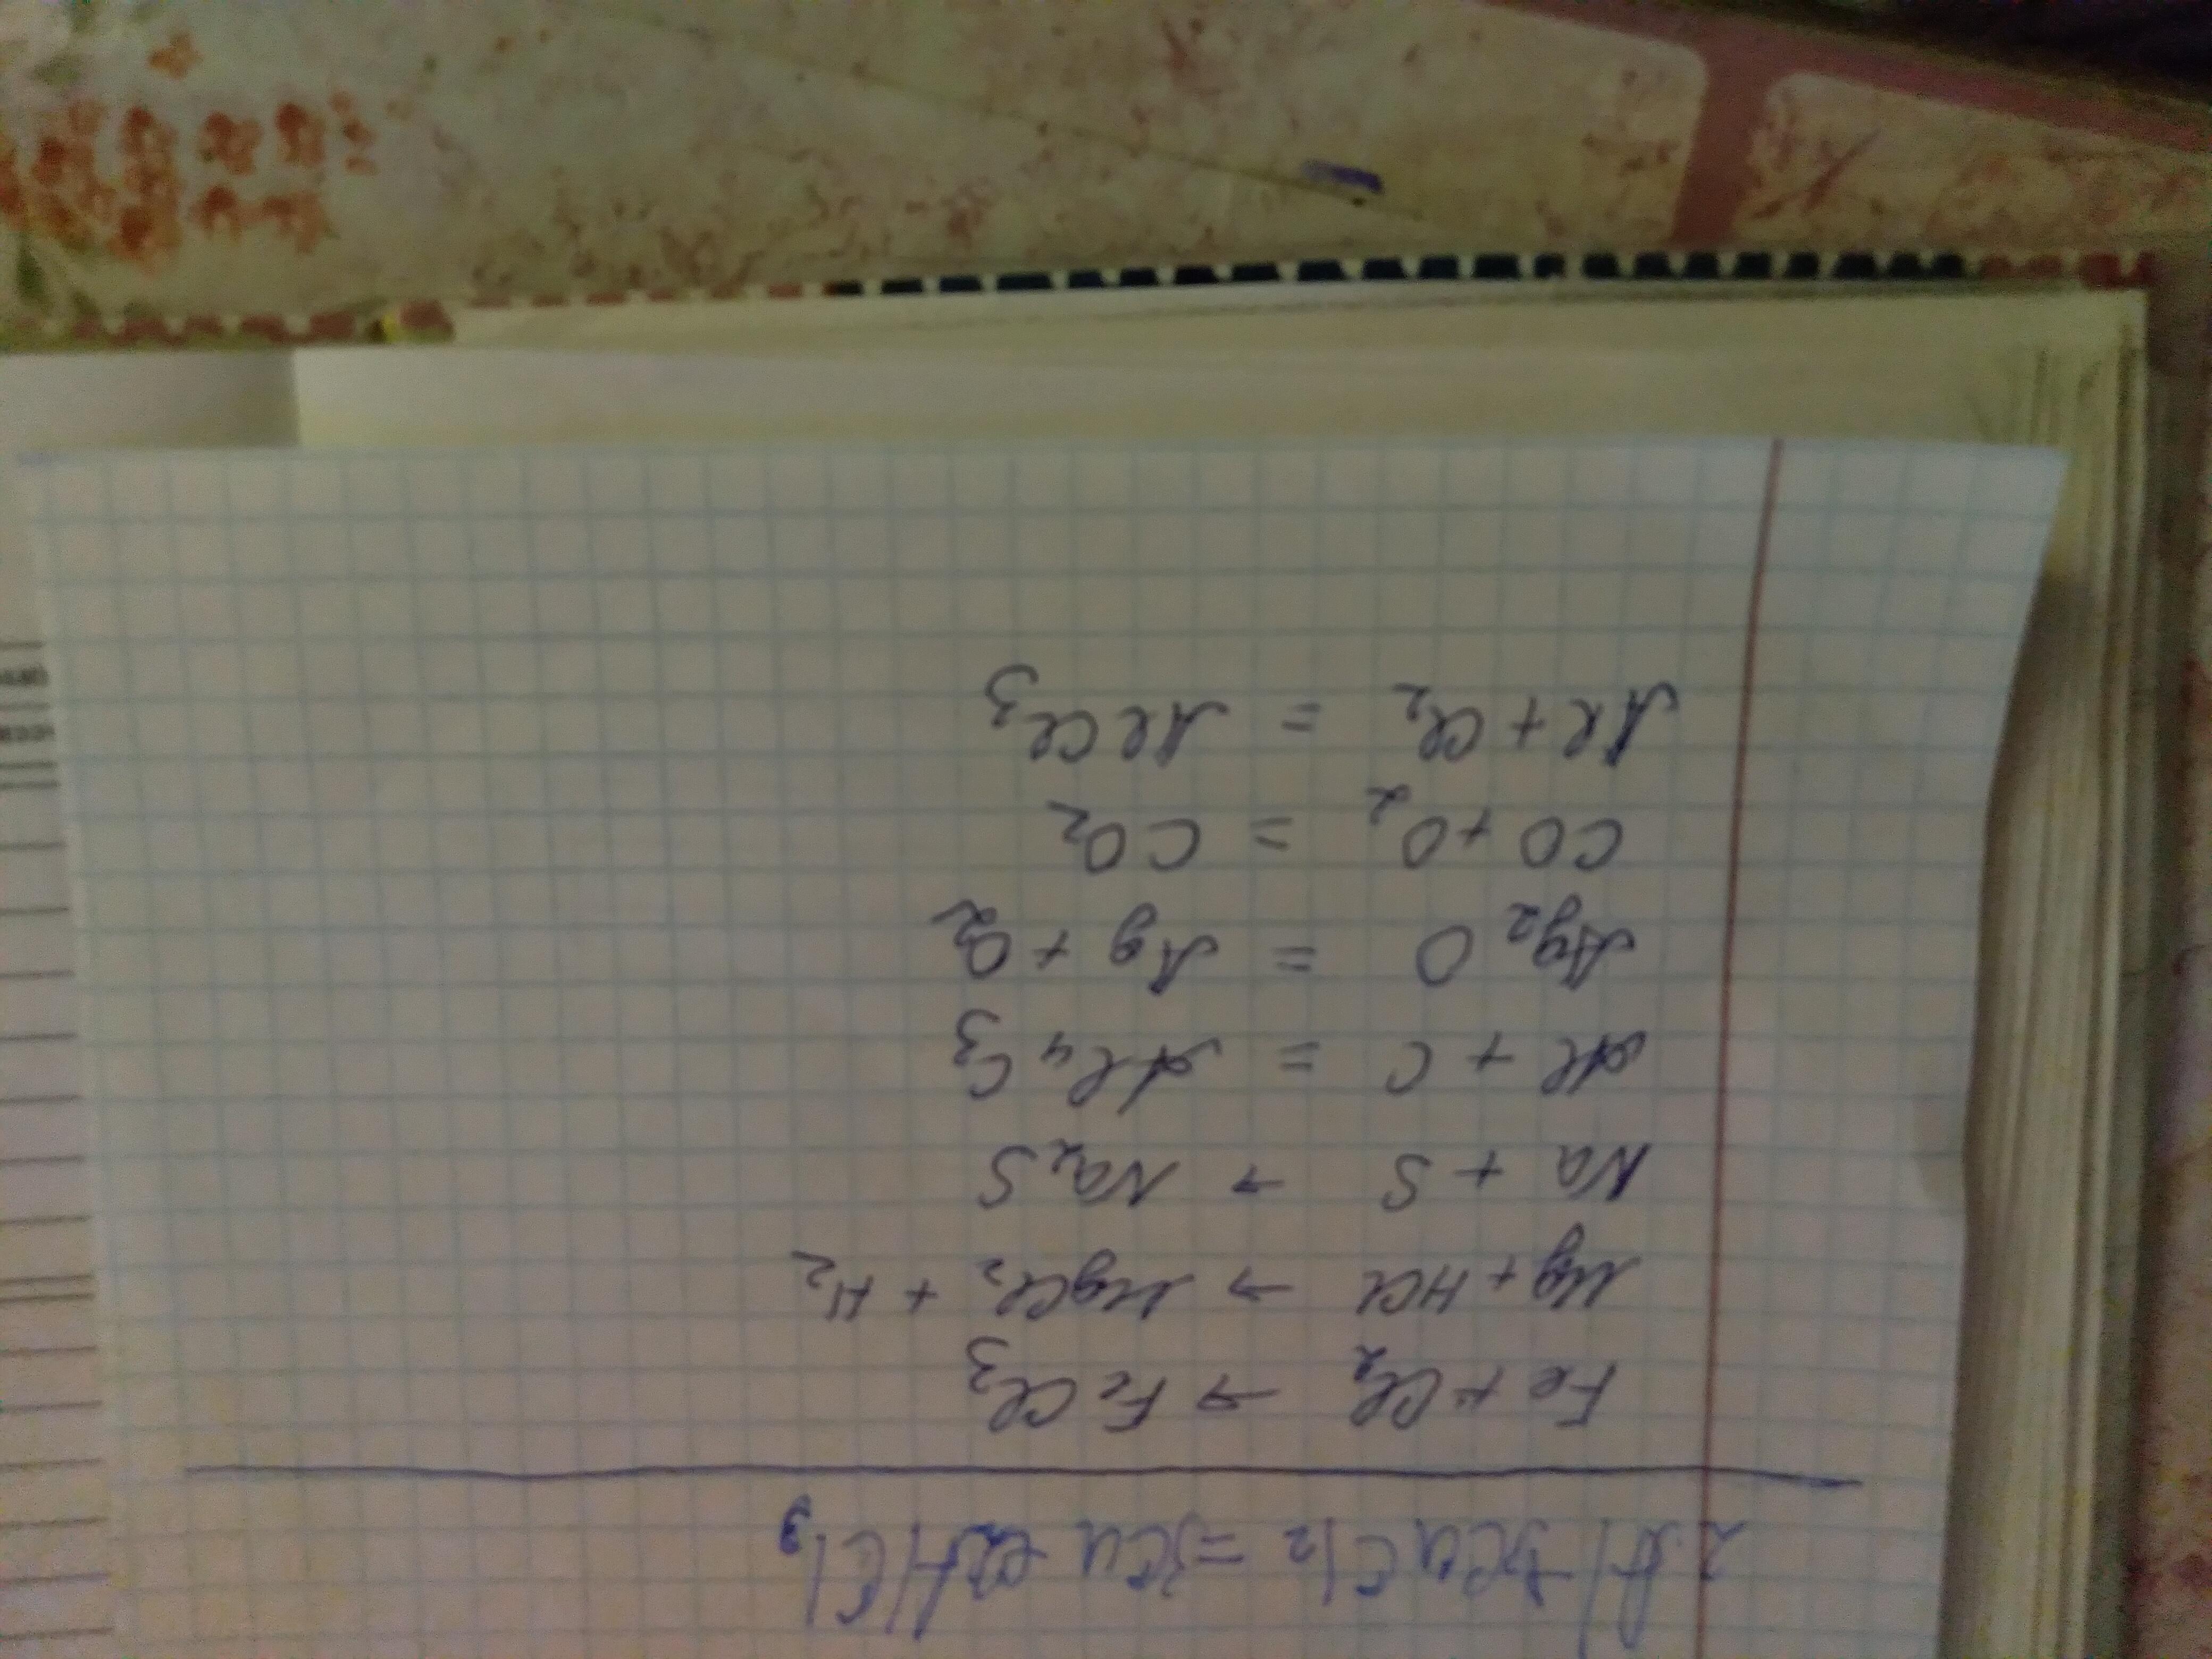 2Al+3CuCl2=3Cu+2AlCl3
Fe + Cl2 → FeCl3
Mg + HCl → MgCl2 + H2
Na + S → Na2S
Al + C = Al4C3
Ag2O = Ag + O2
CO + O2 = CO2
Al + Cl2 = AlCl3